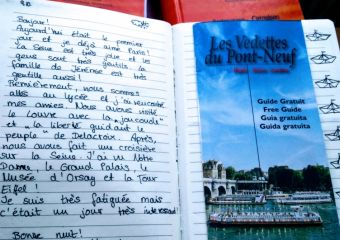 Bonjour!
Aujourd'hui était le premier
jour et je déjà aime Paris!
La Seine est très jolie et les
gens sont très gentils. La
famille de Jérémie est très
gentille aussi!
Premièrement, nous sommes
allés au lycée et j'ai rencontré
mes amies. Nous avons visité
le Louvre avec la "Joconde"
et "la liberté guidant le
peuple" de Delacroix. Après,
nous avons fait une croisière
sur la Seine. J'ai vu Notre
Dame, le Grand Palais, le
Musée d'Orsay et la Tour
Eiffel!
Je suis très fatiguée mais
c'était un jour très intéressant!
Bonne nuit!
Les Vedettes
du Pont-Neuf
Guide Gratuit
Free Guide
Guia gratuita
Guida gratuita